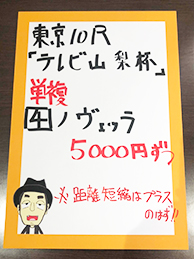 東京10R
「テレビ山梨杯」
単複
④ノヴェッラ
5000円ずつ
※距離短縮はプラス
のはず!!